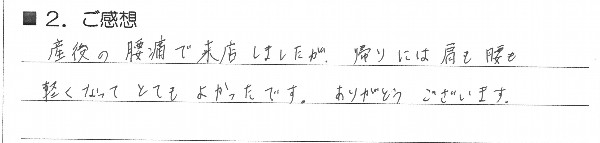 ■ 2. ご感想
産後の腰痛で来店しましたが、帰りには肩も腰も
軽くなって とても よかったです。 ありがとう ございます。